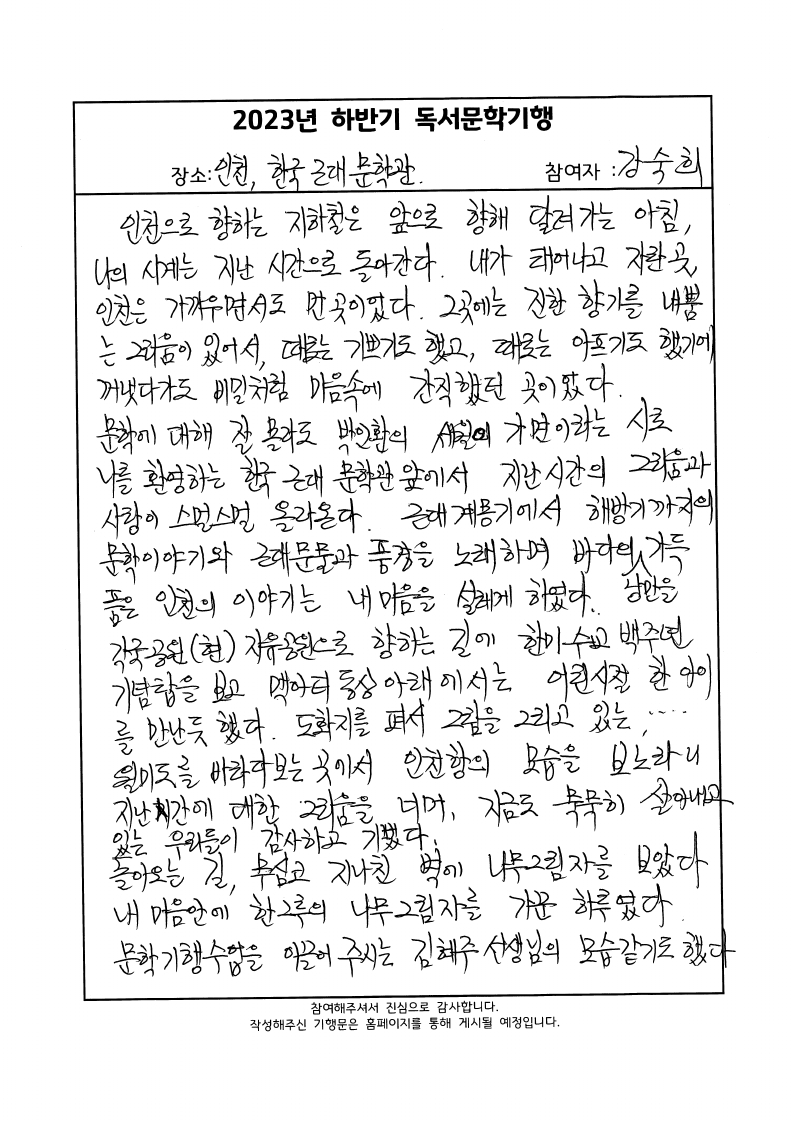 2023년 하반기 독서문학기행
장소:인천, 한국 근대 문학관. 참여자 :강숙희
인천으로 향하는 지하철은 앞으로 향해 달려가는 아침,
나의 시계는 지난 시간으로 돌아간다. 내가 태어나고 자란 곳,
인천은 가까우면서도 먼 곳이었다. 그곳에는 진한 향기를 내뿜
는 그리움이 있어서, 때로는 기쁘기도 했고, 때로는 아프기도 했기에
꺼냈다가도 비밀처럼 마음속에 간직했던 곳이었다.
문학에 대해 잘 몰라도 박인환의 세월의 가면이라는 시로
나를 환영하는 한국 근대 문학관 앞에서 지난시간의 그리움과
사랑이 스멀스멀 올라온다. 근대계몽기에서 해방기까지의
문학이야기와 근대문물과 풍경을 노래하며 바다의 낭만을 가득
품은 인천의 이야기는 내 마음을 설레게 하였다.
각국공원(현) 자유공원으로 향하는 길에 한미수교 백주년
기념탑을 보고 맥아더 동상 아래에서는 어린시절 한 아이
를 만난듯 했다. 도화지를 펴서 그림을 그리고 있는,....
월미도를 바라다보는 곳에서 인천항의 모습을 보노라니
지난시간에 대한 그리움을 너머, 지금도 묵묵히 살아내고
있는 우리들이 감사하고 기뻤다.
돌아오는 길, 무심코 지나친 벽에 나무그림자를 보았다
내 마음안에 한그루의 나무그림자를 가꾼 하루였다.
문학기행수업을 이끌어 주시는 김해주 선생님의 모습같기도 했다
참여해주셔서 진심으로 감사합니다.
작성해주신 기행문은 홈페이지를 통해 게시될 예정입니다.